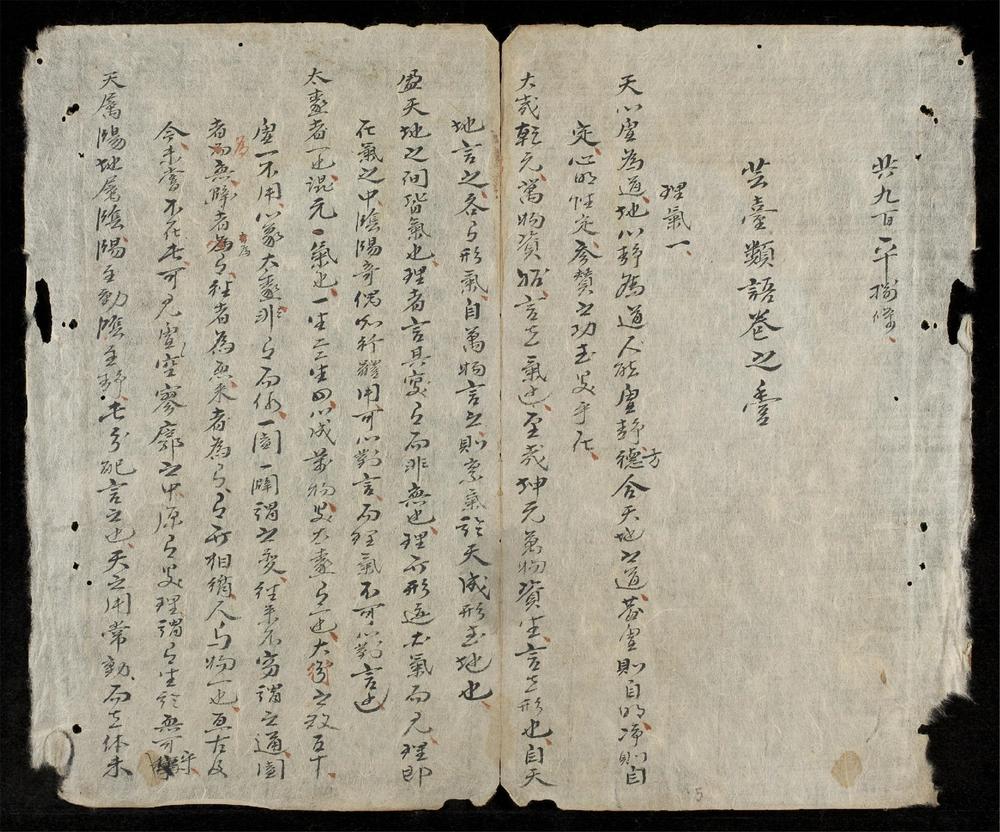 共九百二十捌條
芸臺類語卷之壹
理氣一
天以虛為道地以静為道人能虛静方德合天地之道葢虛則自明净則自
定心明性定參贊之功在是乎在
大哉乾元萬物資始言其氣也至哉坤元萬物資生言其形也自天
地言之各有形氣自萬物言之則禀氣於天成形在地也
盈天地之间皆氣也理者言其寔有而非無也理形迹因氣而見理即
在氣之中陰陽奇偶知行體用可以對言而理氣不可以對言也
太極者一也混元一氣也一生二二生四以成萬物是太極有一也大衍之数五十
虛一不用以象太極非有而何一闔一闢謂之变往來不窮謂之通闔
者為無闢者為有往者為無來者為有有無相禪人与物一也亘古及
今未嘗不在此可見虛空寥廓之中原有是理謂有生於無可乎
天屬陽地屬陰陽主動陰主静此分配言之也天之用常動而其体未